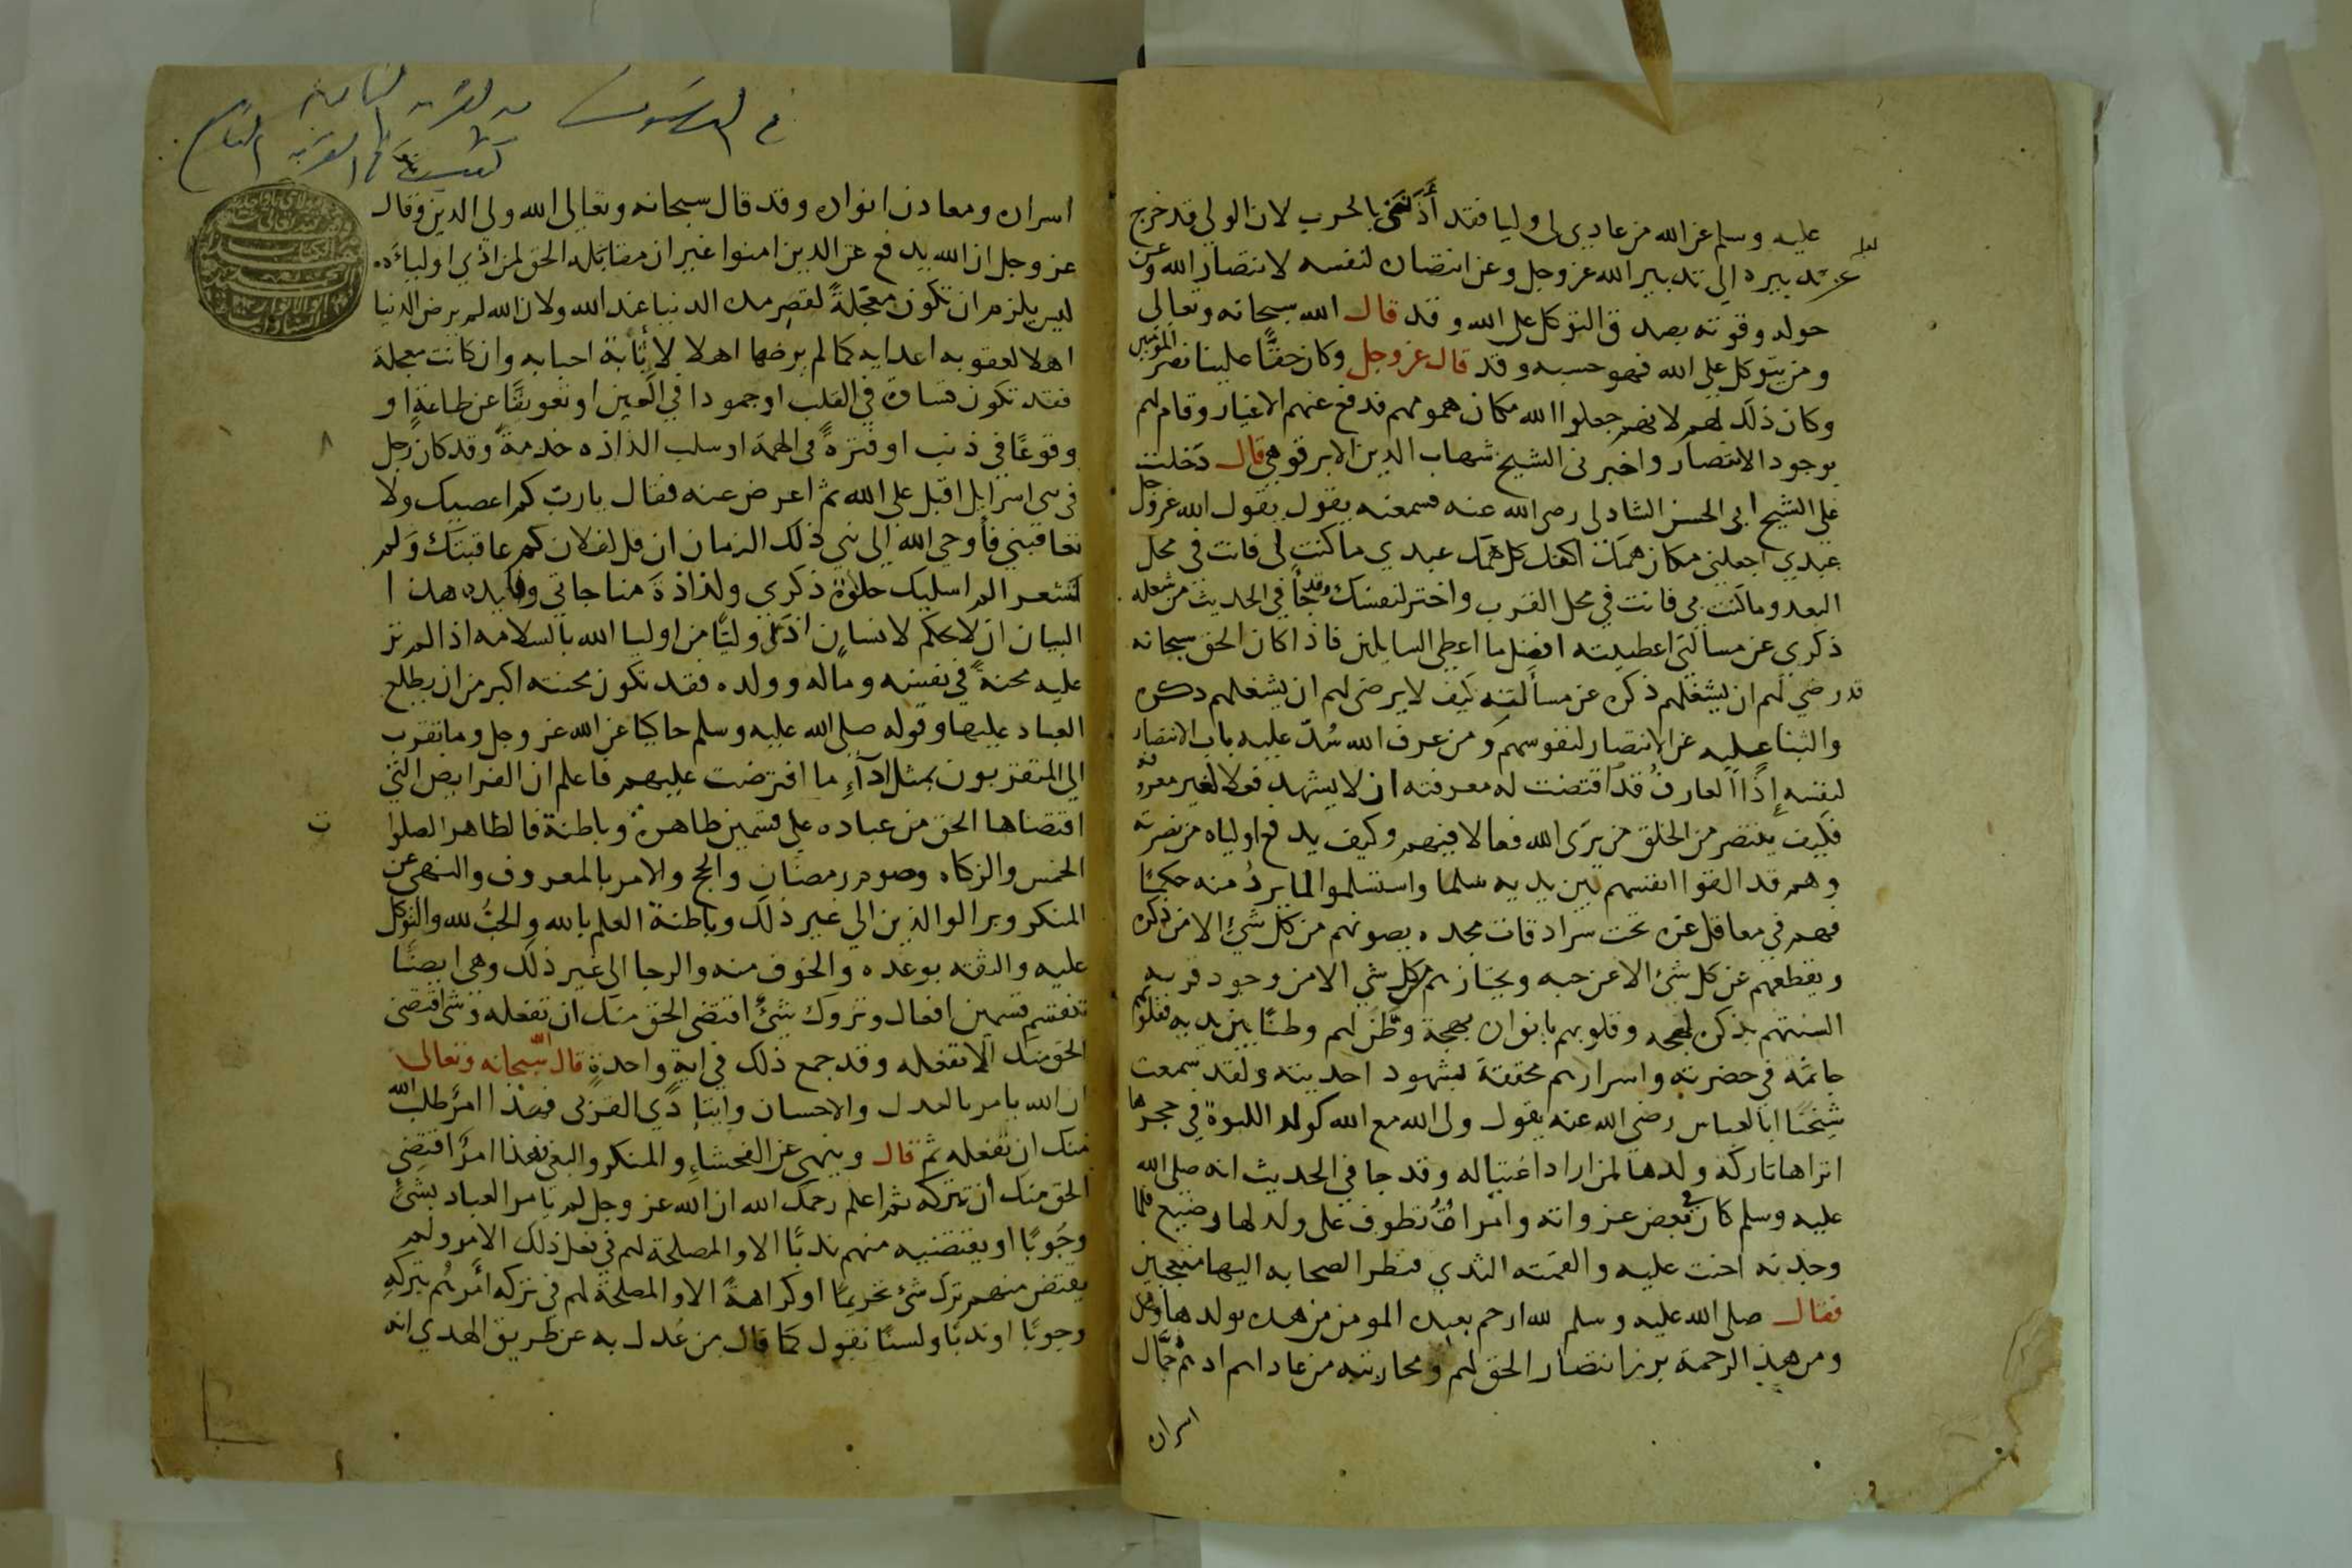 عليه وسلم عن الله من عادى لى وليا فقد أذنني بالحرب لان الولي قد خرج
عن تدبيره الى تدبير الله عز وجل وعن انتصاره لنفسه لانتصار الله وعن
حوله وقوته بصدق التوكل على الله وقد قال الله سبحانه وتعالى
ومن يتوكل على الله فهو حسبه وقد قال عز وجل وكان حقًّا علينا نصر المؤمنين
وكان ذلك لهم لانهم جعلوا الله مكان همومهم فدفع عنهم الاغيار وقام لهم
بوجود الانتصار واخبرنى الشيخ شهاب الدين الابرقوهي قال دخلت
على الشيخ ابى الحسن الشاذلى رضى الله عنه فسمعته يقول يقول الله عز وجل
عبدي اجعلني مكان همك اكفك كل همك عبدي ما كنت لى فانت فى محل
البعد وما كنت بى فانت في محل القرب واختر لنفسك وقد جأ في الحديث من شغله
ذكرى عن مسألتى اعطيته افضل ما اعطى السايلين فاذا كان الحق سبحانه
قد رضي لهم ان يشغلهم ذكره عن مسألته كيف لا يرضى لهم ان يشغلهم ذكره
والثنا عليه عن الانتصار لنفوسهم ومن عرف الله سُدّ عليه باب الانتصار
لنفسه إذًا العارف قد اقتضت له معرفته ان لا يشهد فعلا لغير معروفه
فكيف ينتصر من الخلق من يرَى الله فعالا فيهم وكيف يدع اولياه من نصرته
وهم قد القوا انفسهم بين يديه سلما واستسلموا لما يردُ منه حكمًا
فهم في معاقل عزه تحت سرادقات مجده يصونهم من كل شئ الا من ذكره
ويقطعهم عن كل شئ الا عن حبه ويختارهم من كل شي الا من وجود قربه
السنتهم بذكره لهجه وقلوبهم بانواره بهجة وطّن لهم وطنًا بين يديه فقلوبهم
جاثمة في حضرته واسرارهم محققة لشهود احديته ولقد سمعت
شيخنا ابا العباس رضي الله عنه يقول ولى الله مع الله كولد اللبوة في حجرها
اتراها تاركة ولدها لمن اراد اغتياله وقد جا في الحديث انه صلى الله
عليه وسلم كان في بعض غزواته وامراةٌ تطوف على ولد لها رضيع فلما
وجدته احنت عليه والقمته الثدي فنظر الصحابه اليها متعجبين
فقال صلى الله عليه وسلم لله ارحم بعبده المومن من هذه بولدها
ومن هذه الرحمة برز انتصار الحق لهم ومحاربته من عاداهم اذ هم حمَّال
اسراره
اسراره ومعادن انواره وقد قال سبحانه وتعالى الله ولي الذين وقال
عز وجل ان الله يدفع عن الذين امنوا غير ان مقابلة الحق لمن اذي اولياءَه
ليس يلزم ان تكون معجّلةً لقصر مدة الدنيا عند الله ولان الله لم يرض الدنيا
اهلا لعقوبه اعدايه كما لم يرضها اهلا لاثابة احبابه وان كانت معجلة
فقد تكون قساوة في القلب او جمودا في العين او تعويقًا عن طاعةٍ او
وقوعًا في ذنب او فترةً فى الهمة او سلب لذاذه خدمةٍ وقد كان رجل
فى بنى اسرايل اقبل على الله ثم اعرض عنه فقال يا ربّ كم اعصيك ولا
تعاقبني فأوحى الله الى نبي ذلك الزمان ان قل لفلان كم عاقبتك ولم
تشعر الم اسلبك حلاوة ذكرى ولذاذة مناجاتي وفايده هذا
البيان ان لا يحكم لانسان اذى وليًّا من اوليا الله بالسلامه اذا لم تر
عليه محنةً في نفسه وماله وولده فقد تكون محنته اكبر من ان يطلع
العباد عليها وقوله صلى الله عليه وسلم حاكيا عن الله عز وجل وما تقرب
الى المتقربون بمثل اداءِ ما افترضت عليهم فاعلم ان الفرايض التى
اقتضاها الحق من عباده على قسمين ظاهرة وباطنة فالظاهر الصلوا
ت
الخمس والزكاه وصوم رمضان والحج والامر بالمعروف والنهى عن
المنكر وبر الوالدين الى غير ذلك وباطنة العلم بالله والحبُّ لله والتوكل
عليه والثقة بوعده والخوف منه والرجا الى غير ذلك وهى ايضًا
تنقسم قسمين افعال وتروك شئ اقتضى الحق منك ان تفعله وشى اقتضى
الحق منك الا تفعله وقد جمع ذلك في ايةٍ واحدةٍ قال الله سبحانه وتعالى
ان الله يامر بالعدل والاحسان وايتاءِ ذي القربى فهذا امرٌ طلب الله
منك ان تفعله ثم قال وينهى عن الفحشاءِ والمنكر والبغى فهذا امرٌ اقتضى
الحق منك ان تتركه ثم اعلم رحمك الله ان الله عز وجل لم يامر العباد بشئ
وجوبًا او يقتضيه منهم ندبًا الا والمصلحة لهم في فعل ذلك الامر ولم
يقتض منهم ترك شئ تحريمًا او كراهةً الا والمصلحة لهم في تركه امرهُم بتركهِ
وجوبًا او ندبًا ولسنا نقول كما قال من عُدل به عن طريق الهدي انه